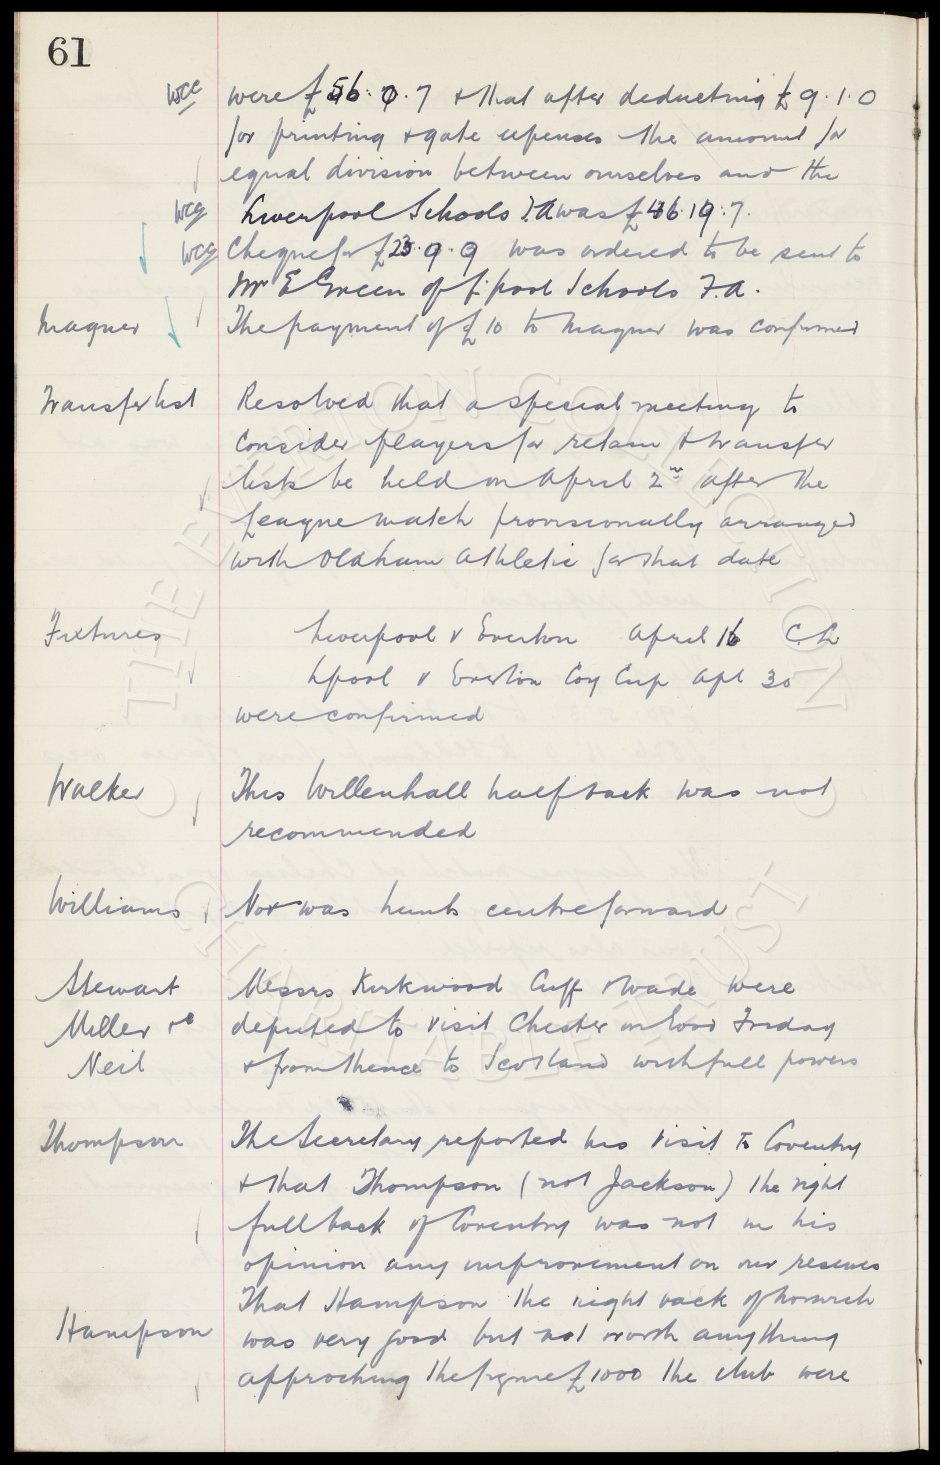 61
wcc were £56. 0. 7 & that after deducting £9. 1. 0
for printing & gate expenses the amount for
equal division between ourselves and the
wcc Liverpool Schools F.A was £46. 19. 7.
wcc Cheque for £23. 9. 9 was ordered to be sent to
Mr E Green of L'pool Schools F.A.
Magner The payment of £10 to Magner was confirmed
Transfer list Resolved that a special meeting to
consider players for retain & transfer
lists be held on April 2nd after the
League match provisionally arranged
with Oldham Athletic for that date
Fixtures Liverpool v Everton April 16 C.L
Lpool v Everton Coy Cup Apl 30
were confirmed
Walker This Willenhall half back was not
recommended
Williams Nor was hunts centre forward
Stewart Messrs Kirkwood Cuff & Wade were
Miller & deputed to visit Chester on Good Friday
Neil & from thence to Scotland with full powers
Thompson The Secretary reported his visit to Coventry
& that Thompson (not Jackson) the right
full back of Coventry was not in his
opinion any improvement on our reserves
That Hampson the right back of Norwich
Hampson was very good but not worth anything
approching the figure £1000 the club were
THE EVERTON COLLECTION
CHARITABLE TRUST